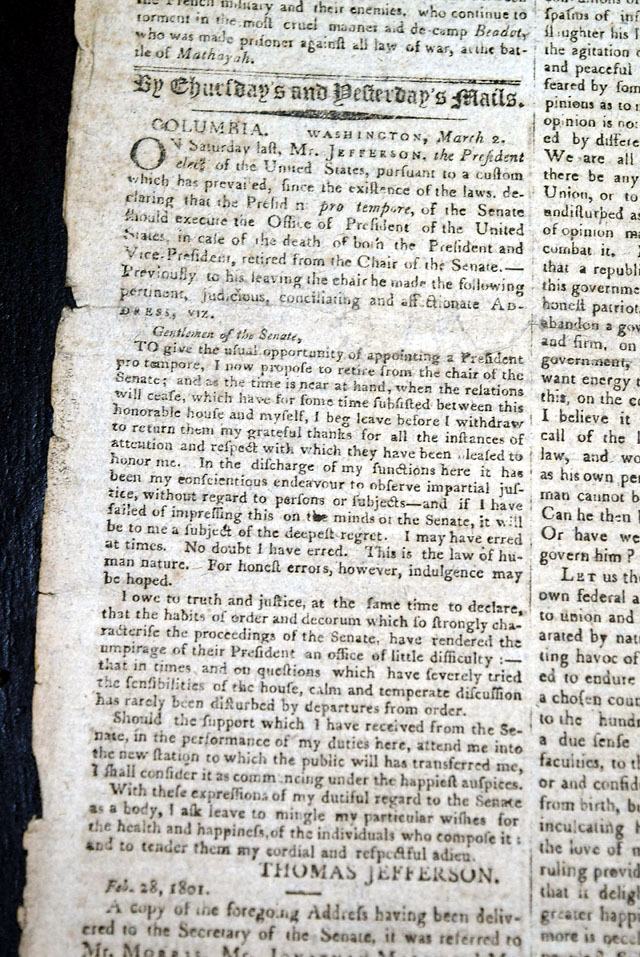 the French military and their enemies, who continue to
torment in the most cruel manner aid de-camp Beadot,
who was made prisoner against all law of war, at the bat-
tle of Mathayah.
By Thursday's and Yesterday's Mails.
COLUMBIA. WASHINGTON, March 2.
ON Saturday last, Mr. JEFFERSON, the President
elect of the United States, pursuant to a custom
which has prevailed, since the existence of the laws, de-
claring that the Presid n pro tempore, of the Senate
should execute the Office of President of the United
States, in case of the death of both the President and
Vice-President, retired from the Chair of the Senate.—
Previously to his leaving the chair he made the following
pertinent, judicious, conciliating and affectionate AD-
DRESS, VIZ.
Gentlemen of the Senate,
TO give the usual opportunity of appointing a President
pro tempore, I now propose to retire from the chair of the
Senate; and as the time is near at hand, when the relations
will cease, which have for some time subsisted between this
honorable house and myself, I beg leave before I withdraw
to return them my grateful thanks for all the instances of
attention and respect with which they have been leased to
honor me. In the discharge of my functions here it has
been my conscientious endeavour to observe impartial jus-
tice, without regard to persons or subjects—and if I have
failed of impressing this on the minds of the Senate, it will
be to me a subject of the deepest regret. I may have erred
at times. No doubt I have erred. This is the law of hu-
man nature. For honest errors, however, indulgence may
be hoped.
I owe to truth and justice, at the same time to declare,
that the habits of order and decorum which so strongly cha-
racterise the proceedings of the Senate, have rendered the
umpirage of their President an office of little difficulty :—
that in times and on questions which have severely tried
the sensibilities of the house, calm and temperate discussion
has rarely been disturbed by departures from order.
Should the support which I have received from the Se-
nate, in the performance of my duties here, attend me into
the new station to which the public will has transferred me,
I shall consider it as comm ncing under the happiest auspices.
With these expressions of my dutiful regard to the Senate
as a body, I ask leave to mingle my particular wishes for
the health and happiness, of the individuals who compose it :
and to tender them my cordial and respectful adieu.
THOMAS JEFFERSON.
Feb. 28, 1801.
A copy of the foregoing Address having been deliv-
ered to the Secretary of the Senate, it was referred to
Mr. MORRIS, Mr.
spasms of in
slaughter his l
the agitation o
and peaceful
feared by som
pinions as to m
opinion is no
ed by differe
We are all
there be any
Union, or to
undisturbed as
of opinion ma
combat it.
that a republi
this governme
honest patriot
abandon a gov
and firm, on
government,
want energy t
this, on the co
I believe it
call of the l
law, and wo
as his own per
man cannot b
Can he then
Or have we
govern him ?
LET us th
own federal a
to union and
arated by nat
ting havoc of
ed to endure
a chosen coun
to the hundr
a due sense
faculties, to th
or and confid
from birth, bu
inculcating
the love of m
ruling provid
that it delig
greater happ
more is nece